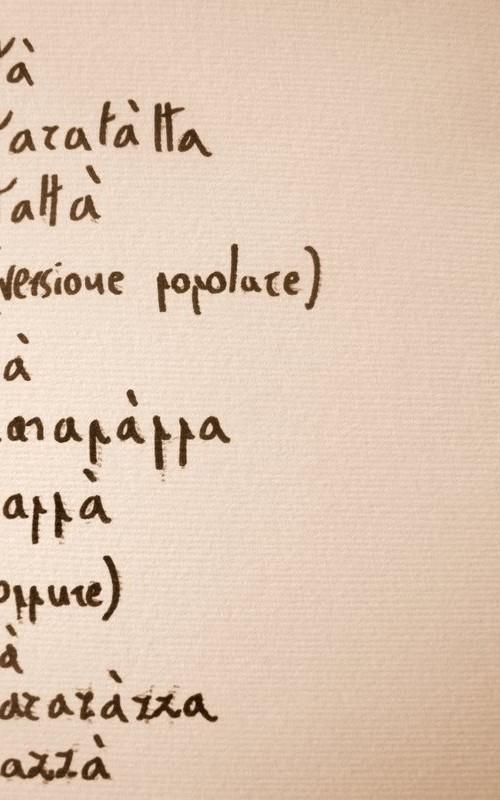 à
aratàtta
attà
versione popolare)
à
arapàppa
appà
oppure)
à
arazàzza
azzà